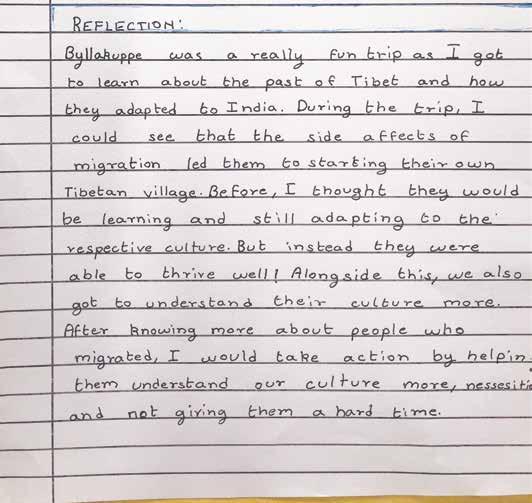 REFLECTION:
Byllakuppe was a really fun trip as I got
to learn about the past of Tibet and how
they adapted to India. During the trip, I
could see that the side affects of
migration led them to starting their own
Tibetan village. Before, I thought they would
be learning and still adapting to the
respective culture. But instead they were
able to thrive well! Alongside this, we also
got to understand their culture more.
After knowing more about people who
migrated, I would take action by helpin
them understand our culture more, nessesitie
and not giving them a hard time.